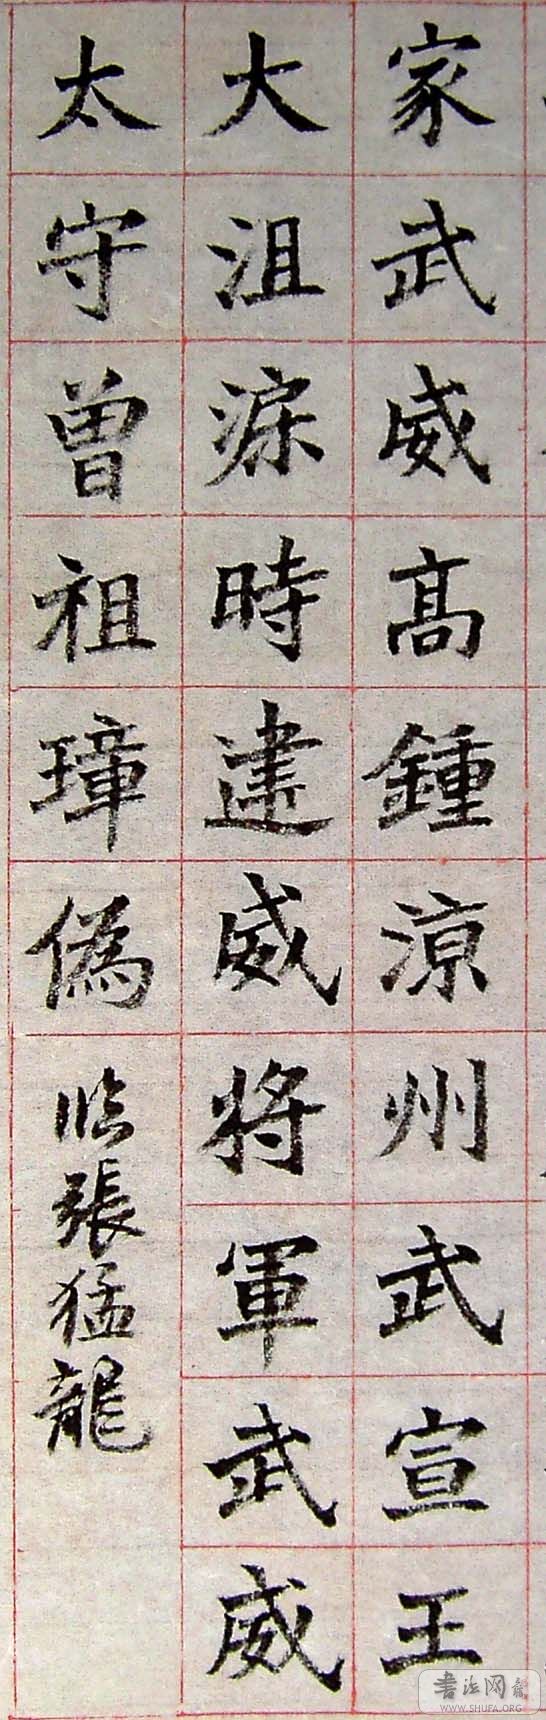 家武威高鍾涼州武宣王
大沮渠時建威將軍武威
太守曾祖璋偽
臨張猛龍
書法网
WWW.SHUFA.ORG